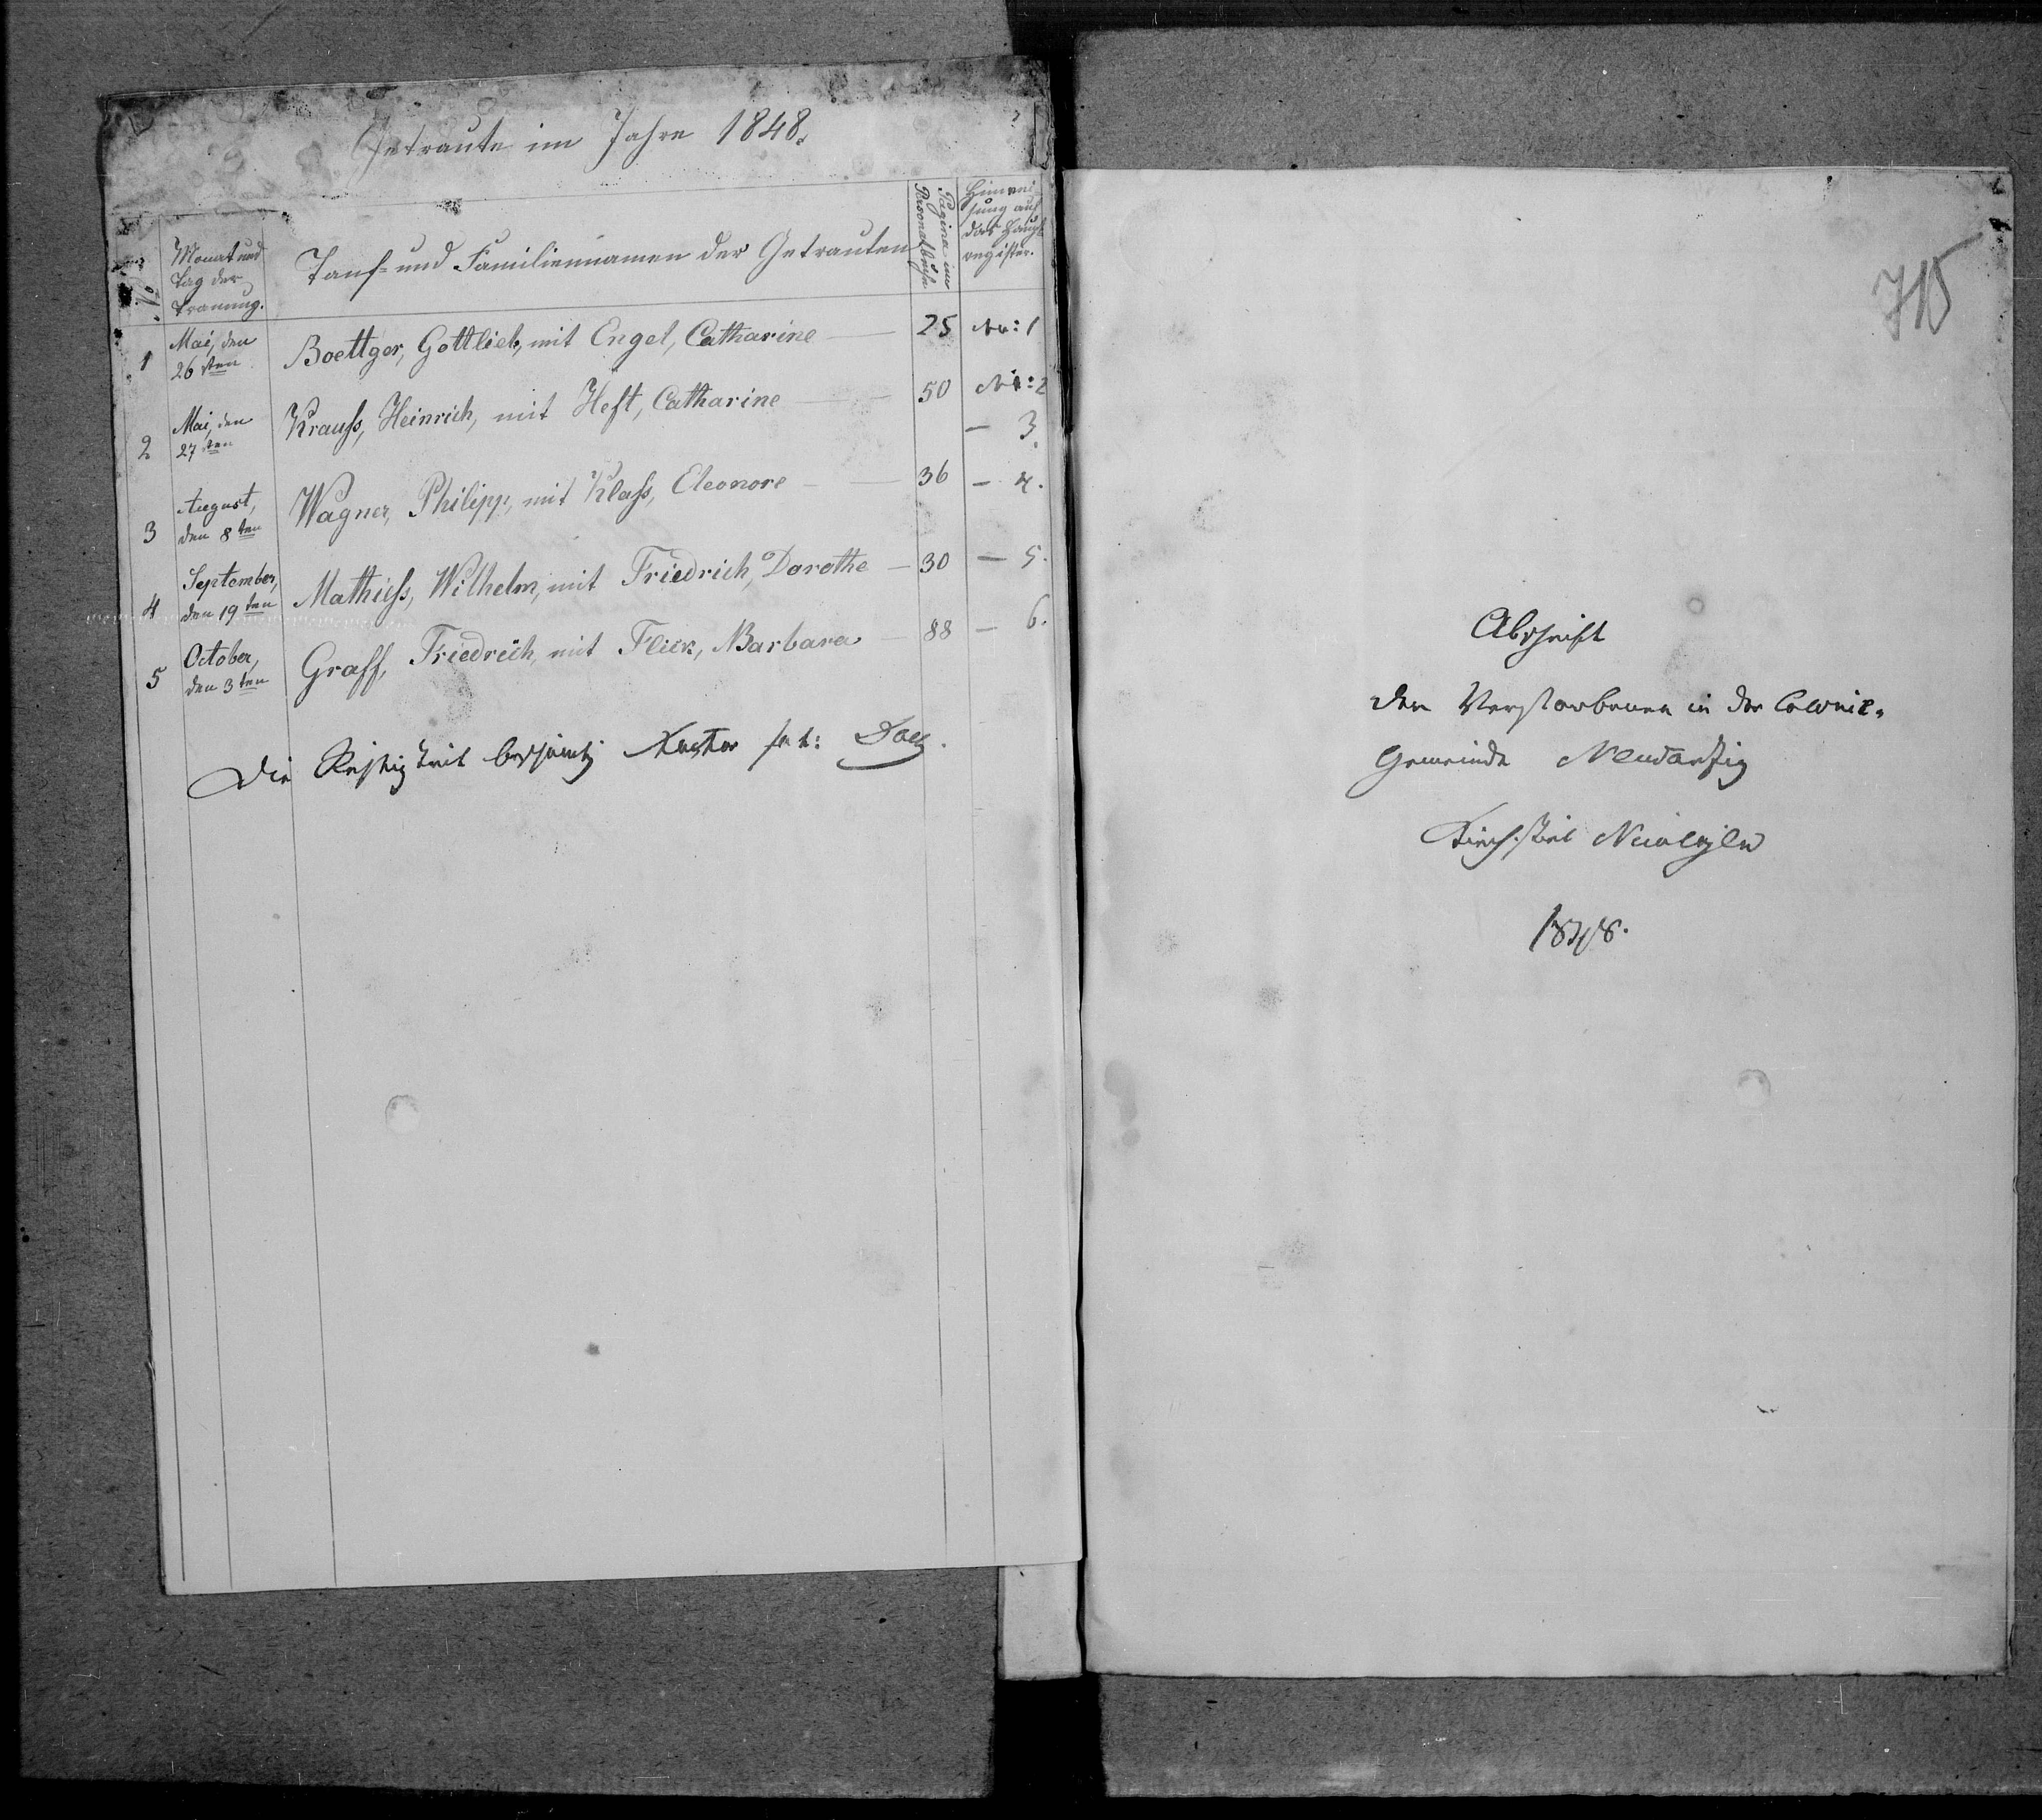 Getraute im Jahre 1848.
No
Monat und
Tag der
Trauung.
Tauf- und Familiennamen der Getrauten
Pagina im
Personalbuch
Hinwei-
sung auf
das Haupt-
register.
1 Mai, den 26sten Boettger, Gottlieb, mit Engel, Catharine 25 Nr: 1
2 Mai, den 27sten Krauß, Heinrich, mit Heft, Catharine 50 Nr: 2
— 3.
3 August, den 8ten Wagner, Philipp, mit Klaß, Eleonore 36 — 4.
4 September, den 19ten Mathieß, Wilhelm, mit Friedrich, Dorothe — 30 — 5.
5 October, den 3ten Graff, Friedrich, mit Flick, Barbara — 88 — 6.
Die Richtigkeit bescheinigt Pastor
715
Abschrift
der Verstorbenen in der Colonie-
Gemeinde Neudantzig
Kirchspiel
1848.